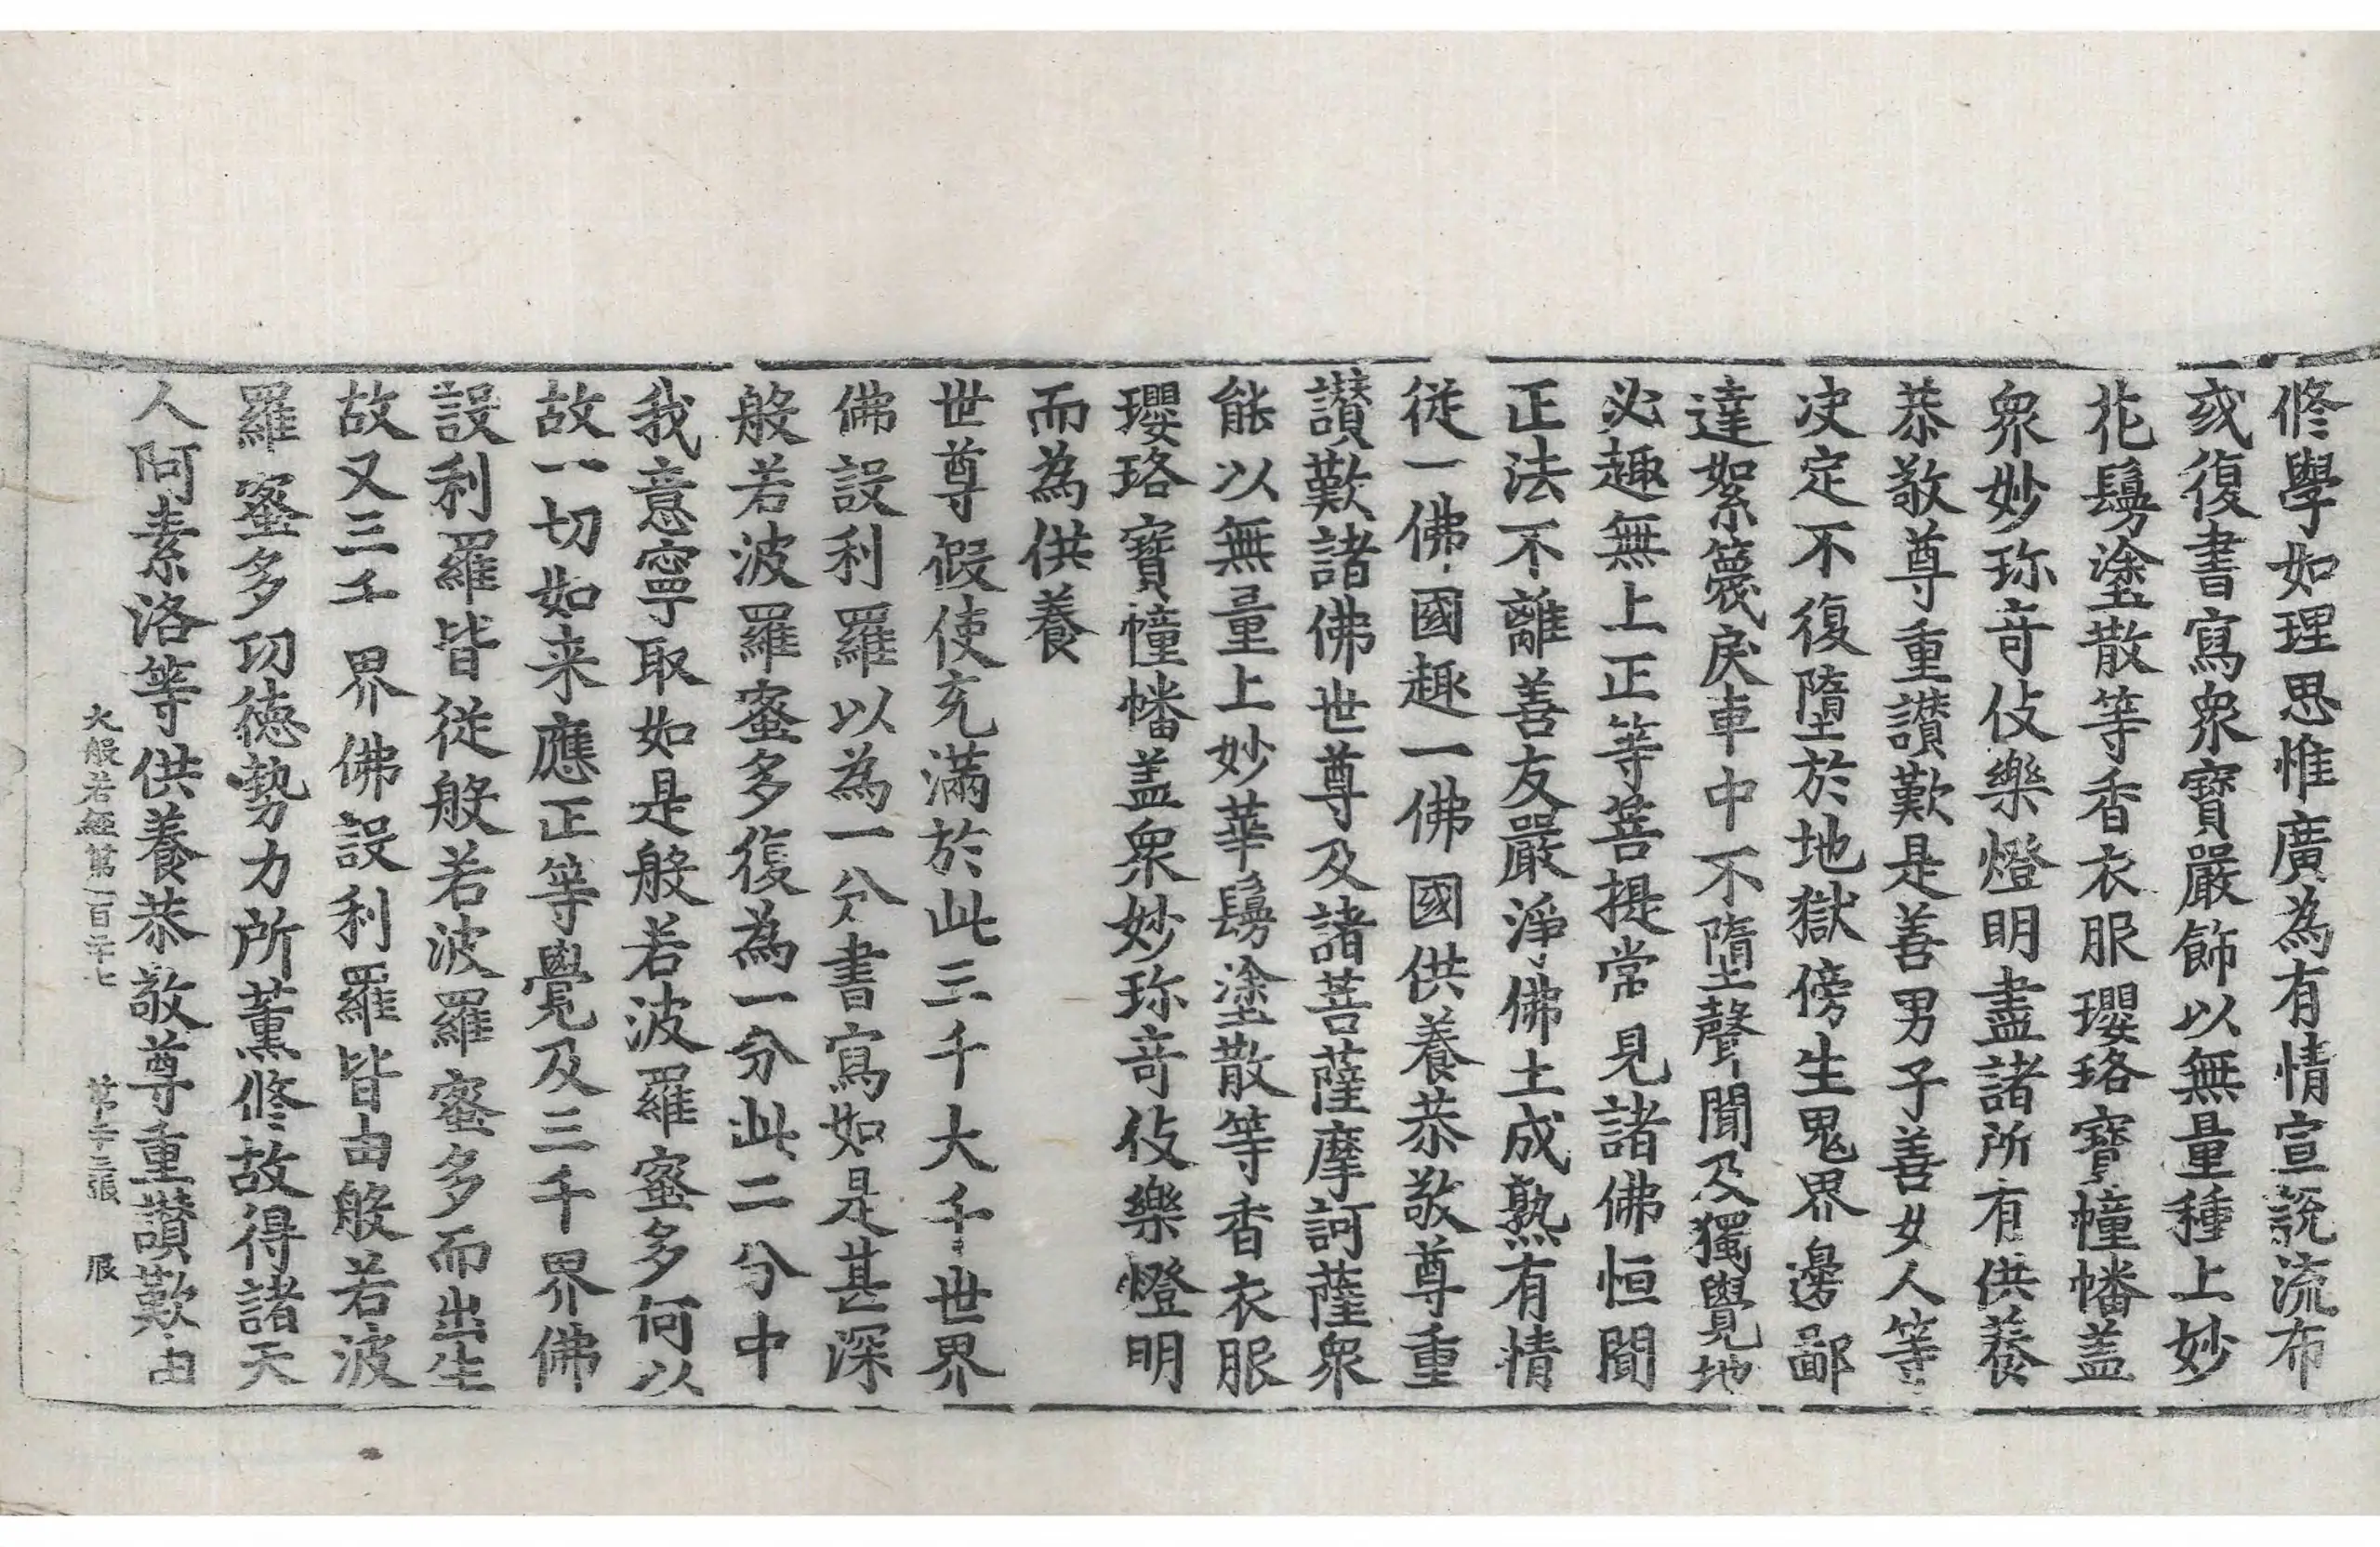 修學如理思惟廣為有情宣說流布
或復書寫衆寶嚴飾以無量種上妙
花鬘塗散等香衣服瓔珞寶幢幡盖
衆妙珎竒伎樂燈明盡諸所有供養
恭敬尊重讃歎是善男子善女人等
决定不復墮於地獄傍生鬼界邊鄙
達絮篾戾車中不墮聲聞及獨覺地
必趣無上正等菩提常見諸佛恒聞
正法不離善友嚴淨佛土成熟有情
從一佛國趣一佛國供養恭敬尊重
讃歎諸佛世尊及諸菩薩摩訶薩衆
能以無量上妙華鬘塗散等香衣服
瓔珞寶幢幡盖衆妙珎竒伎樂燈明
而為供養
世尊假使充滿於此三千大千世界
佛設利羅以為一分書寫如是甚深
般若波羅蜜多復為一分此二分中
我意寧取如是般若波羅蜜多何以
故一切如来應正等覺及三千界佛
設利羅皆從般若波羅蜜多而出生
故又三千界佛設利羅皆由般若波
羅蜜多功德勢力所薰修故得諸天
人阿素洛等供養恭敬尊重讃歎由
大般若經第一百二十七 第二十三張 辰